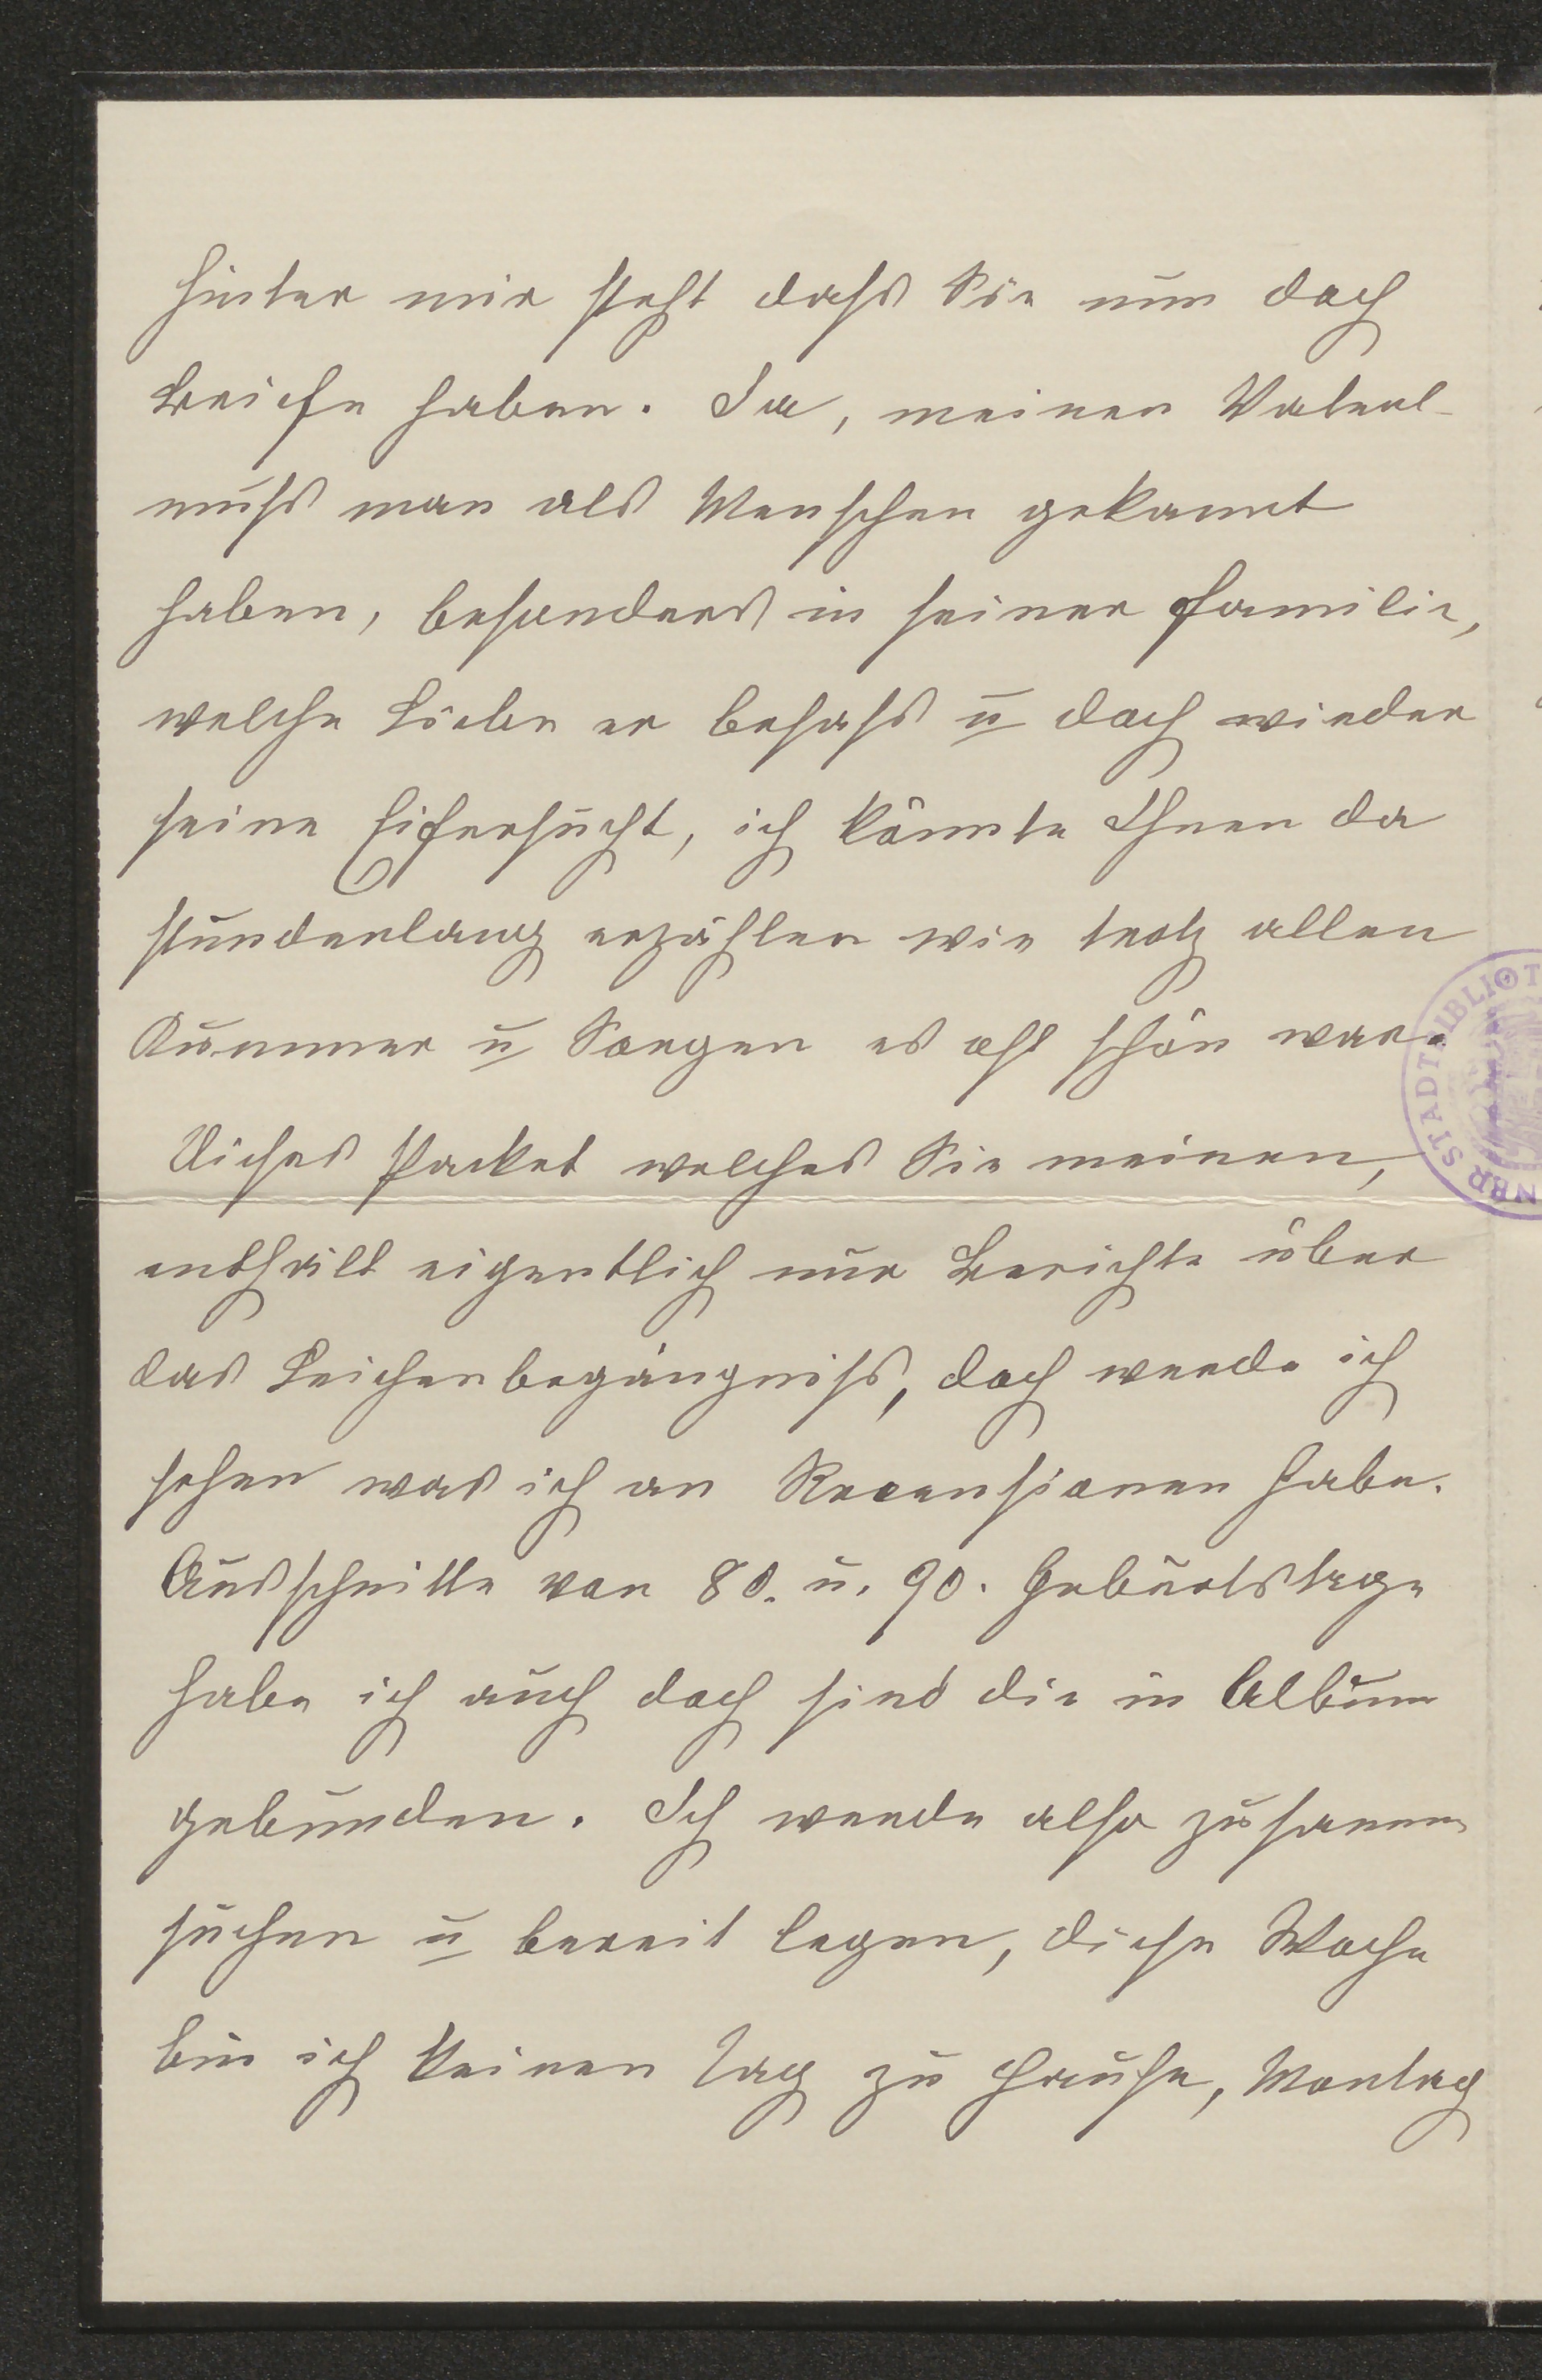 hinter mir steht dass Sie nun doch
Briefe haben. Ja, meinen Vaterl
muss man als Menschen gekannt
haben, besonders in seiner Familie,
welche Liebe er besass u doch wieder
seine Eifersucht, ich könnte Ihnen da
stundenlang erzählen wie trotz allen
Kummer u Sorgen es oft schön war.
Dieses Packet welches Sie meinen,
enthält eigentlich nur Berichte über
das Leichenbegängniss, doch werde ich
sehen was ich an Recensionen habe.
Ausschnitte von 80. u. 90. Geburtstage
habe ich auch doch sind die in Album
gebunden. Ich werde also zusamm
suchen u bereit legen, diese Woche
bin ich keinen Tag zu Hause, Montag
NER STADTBIBLIOT